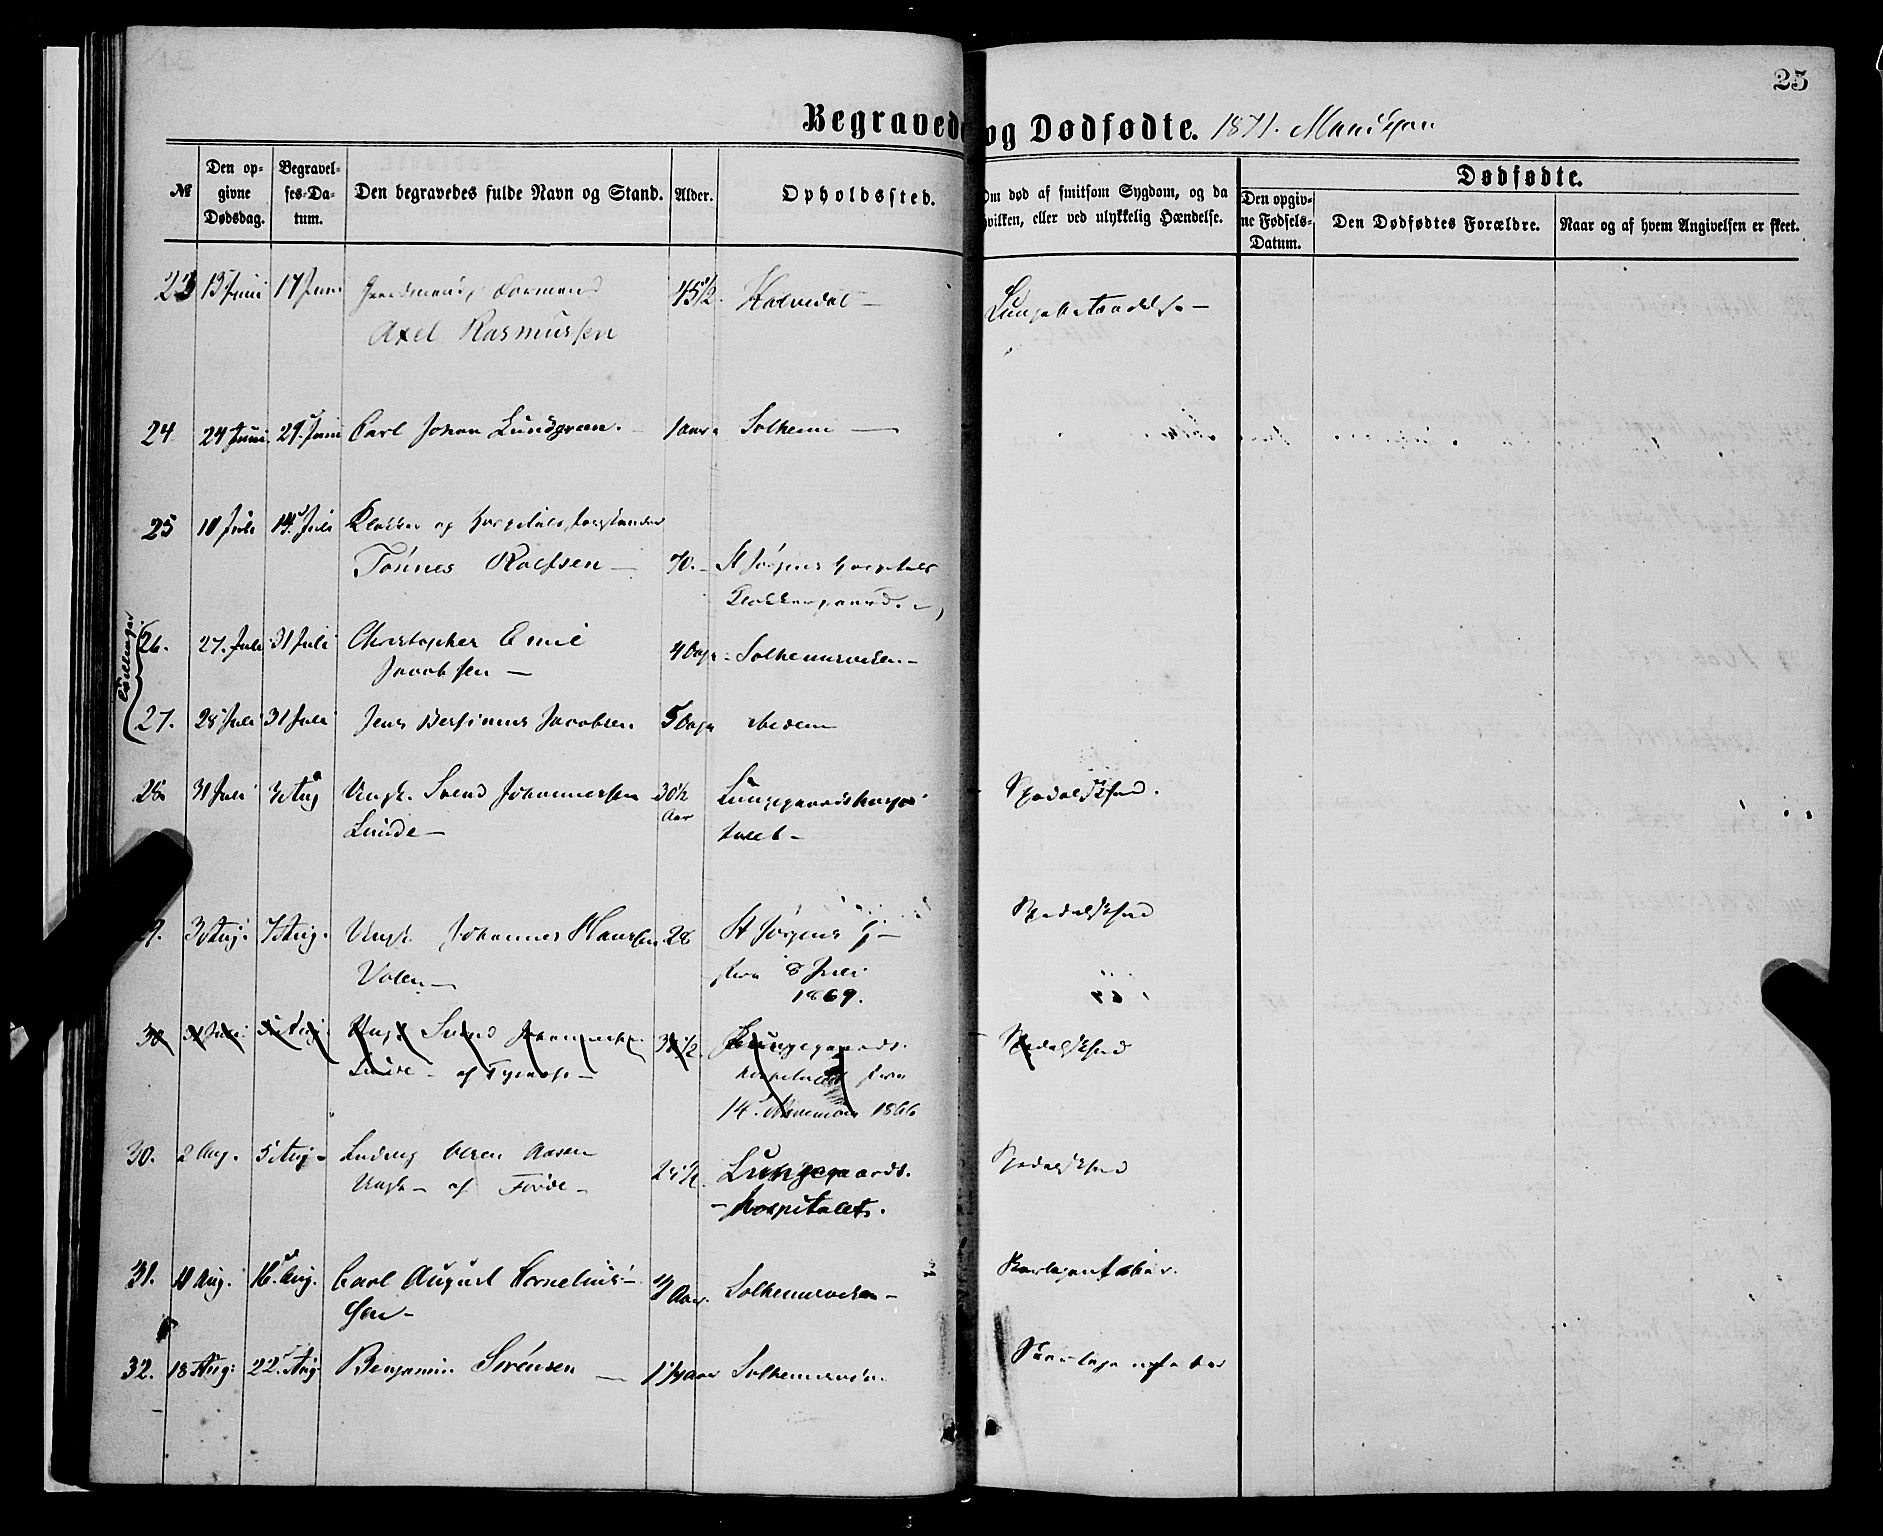 25
Begravede og Dødfødte. 1871. Mandkjøn
№
Den opgivne Dødsdag.
Begravelses-Datum.
Den begravedes fulde Navn og Stand.
Alder.
Opholdssted.
Om død af smitsom Sygdom, og da hvilken, eller ved ulykkelig Hændelse.
Dødfødte.
Den opgivne Fødsels-Datum.
Den Dødfødtes Forældre.
Naar og af hvem Angivelsen er skeet.
23 13 Juni 17 Juni
Axel Rasmussen 45 1/2. Kalvedal — Lungebetændelse —
24 24 Juni 29. Juni Carl Johan Lundgreen. 1 aar Solheim —
25 10 Juli 14. Juli Klokker og Hospitalsforstander
Tönnes Rolfsen — 70. St Jörgens Hospitals
Klokkergaard.
Tvillinger
26. 27. Juli 31 Juli Christopher Emil
Jacobsen — 4 Dage Solheimsviken —
27. 28 Juli 31 Juli Jens Jacobsen 5 Dage ibidem
28 31 Juli 3 Aug Ungk. Svend Johannessen
Lunde — 30 1/2 Aar Lungegaardshospi
talet — Spedalskhed.
29. 3 Aug. 7 Aug. Ungk. Johannes Hansen
Valen — 28 St Jörgens H —
fra 8 Juli
1869. Spedalskhed
30 31 Juli Aug. Ungk Svend Johannessen
Lunde — af 30 1/2. Lungegaards.
hospitalet fra
14. November 1866 Spedalskhed
30. 2 Aug. 5 Aug. Ludvig Aasen
Ungk — af Förde — 24 1/2. Lungegaards.
— hospitalet. Spedalskhed
31. 11 Aug. 16. Aug. Carl August Cornelius-
sen — Aar. Solheimsviken — Skarlagensfeber.
32. 18 Aug: 22. Aug Benjamin Sörensen — aar Solheimsviken Skarlagensfeber